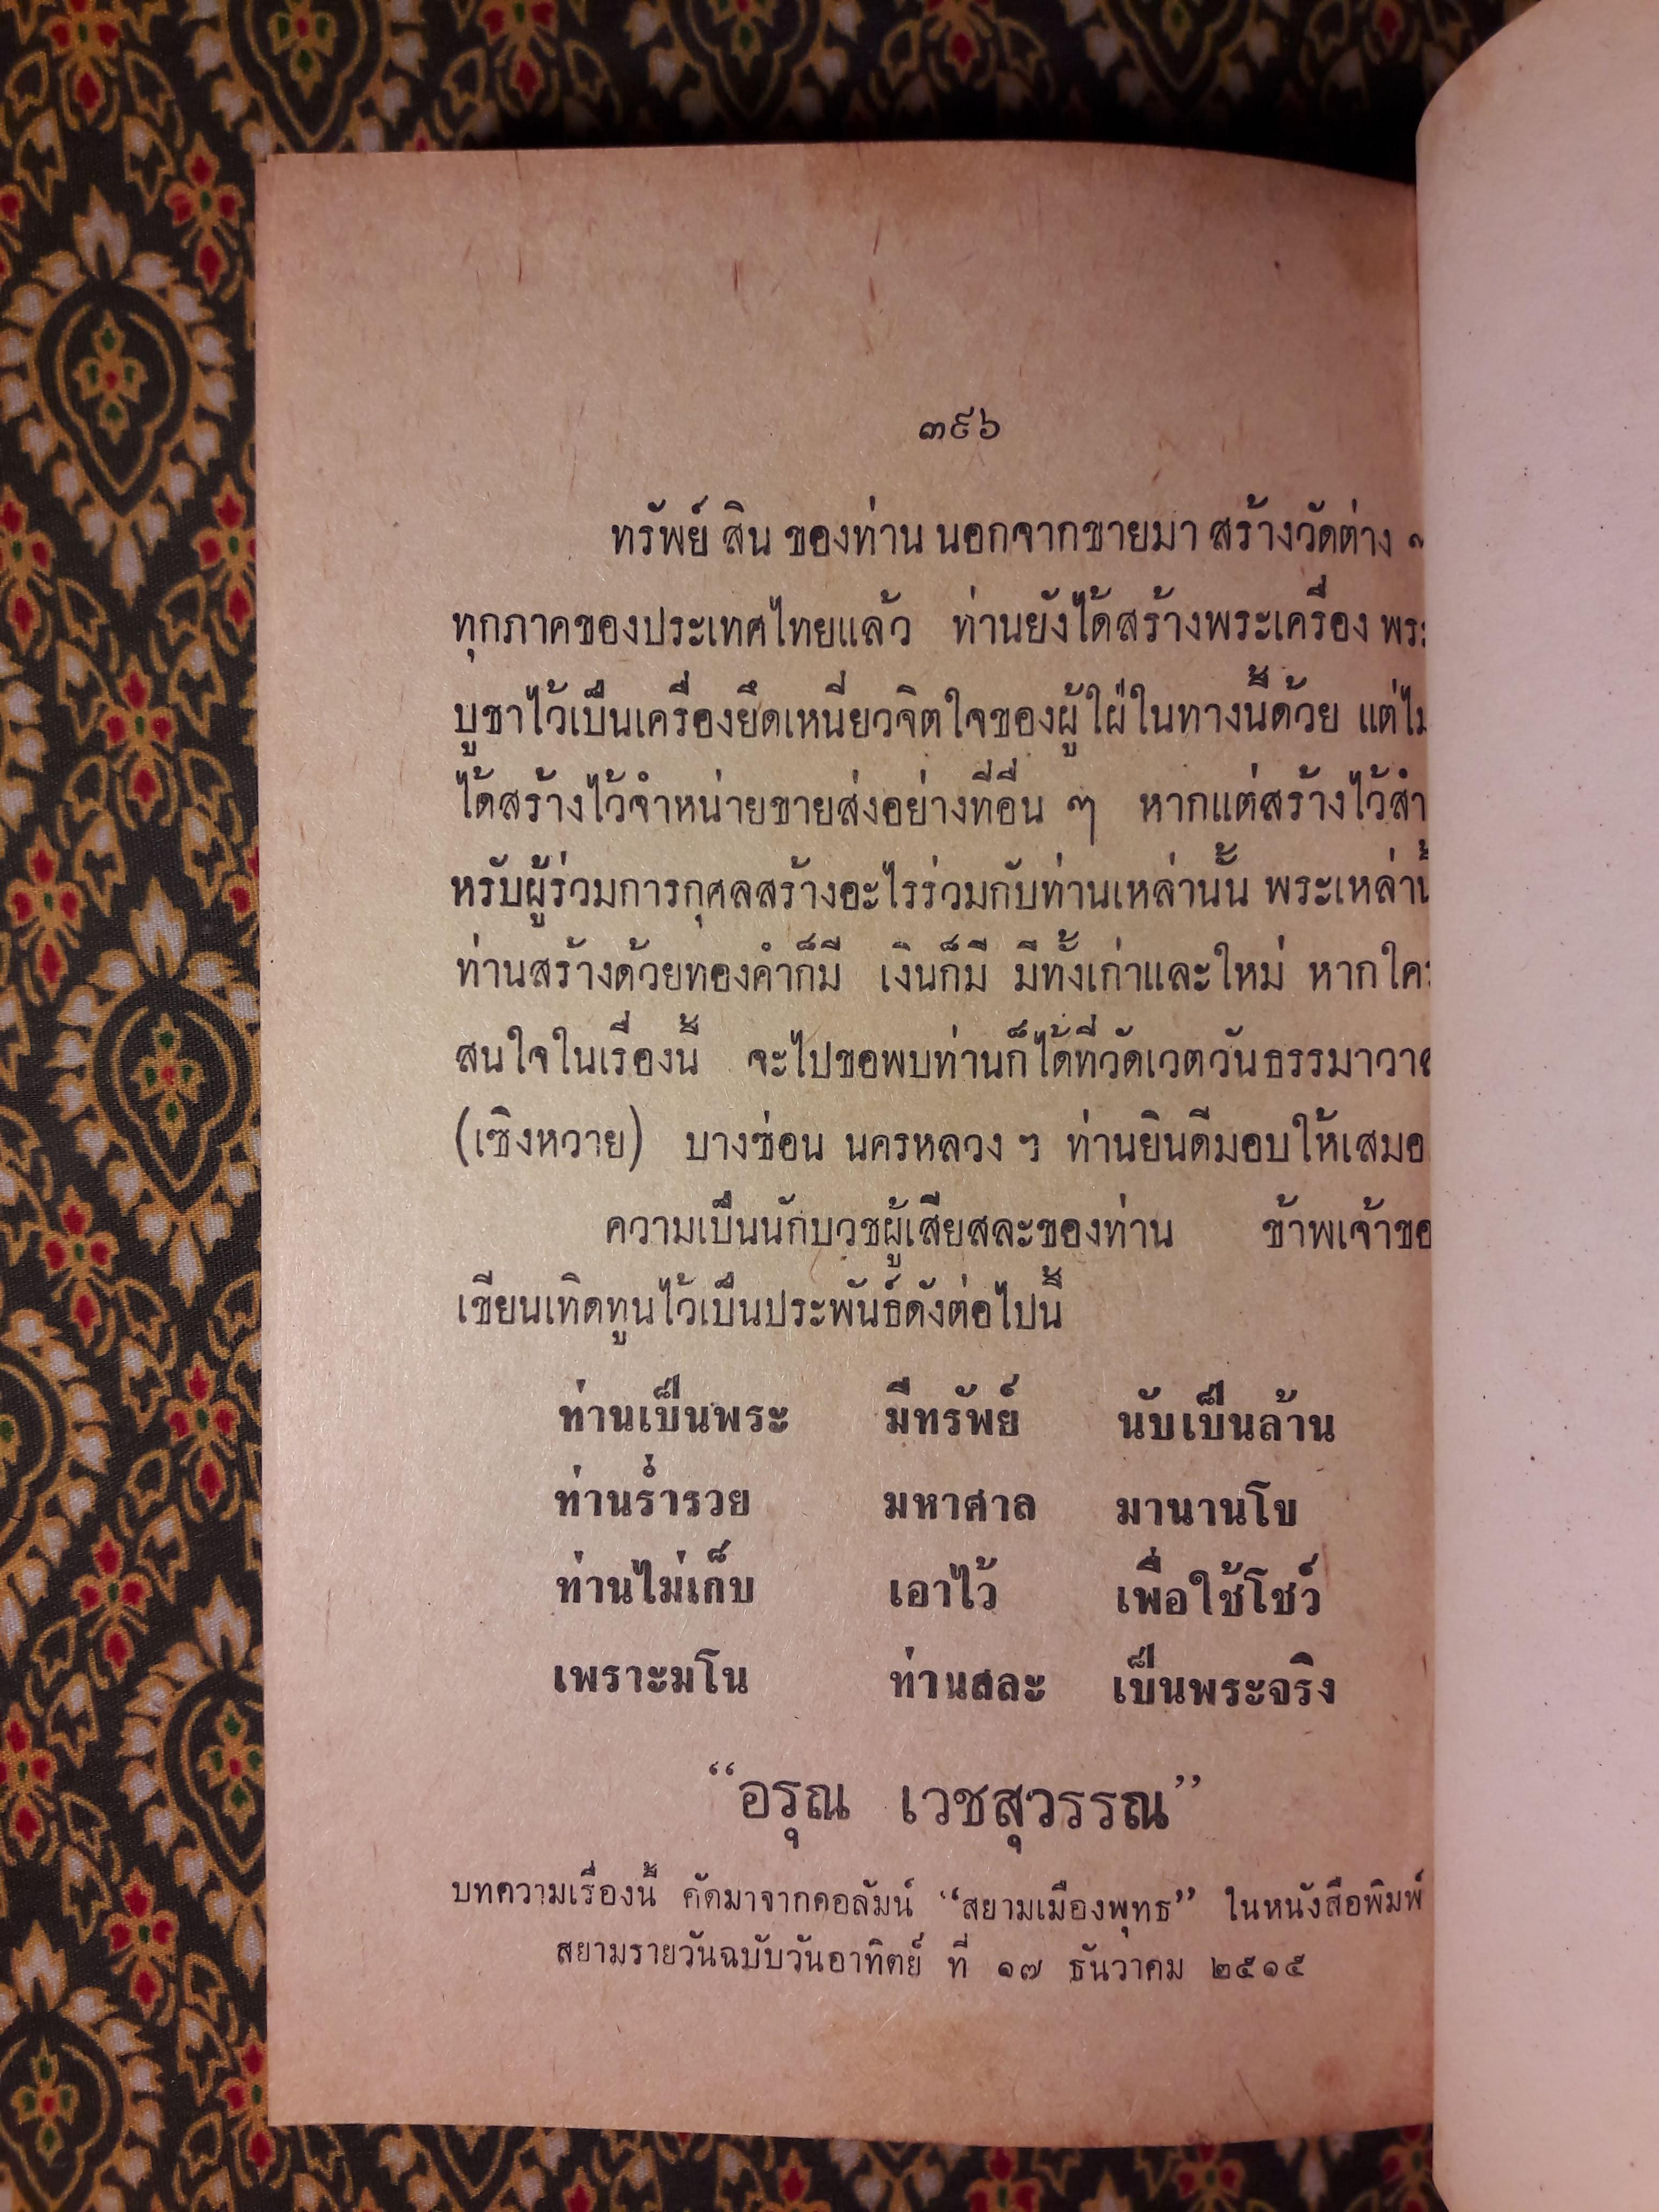 ๓๙๖
ทรัพย์ สิน ของท่าน นอกจากขายมา สร้างวัดต่าง ๆ
ทุกภาคของประเทศไทยแล้ว ท่านยังได้สร้างพระเครื่อง พระ
บูชาไว้เป็นเครื่องยึดเหนี่ยวจิตใจของผู้ใฝ่ในทางนี้ด้วย แต่ไม่
ได้สร้างไว้จำหน่ายขายส่งอย่างที่อื่น ๆ หากแต่สร้างไว้สำ
หรับผู้ร่วมการกุศลสร้างอะไรร่วมกับท่านเหล่านั้น พระเหล่านี้
ท่านสร้างด้วยทองคำก็มี เงินก็มี มีทั้งเก่าและใหม่ หากใคร
สนใจในเรื่องนี้ จะไปขอพบท่านก็ได้ที่วัดเวตวันธรรมาวาส
(เซิงหวาย) บางซ่อน นครหลวง ฯ ท่านยินดีมอบให้เสมอ
ความเป็นนักบวชผู้เสียสละของท่าน ข้าพเจ้าขอ
เขียนเทิดทูนไว้เป็นประพันธ์ดังต่อไปนี้
ท่านเป็นพระ มีทรัพย์ นับเป็นล้าน
ท่านร่ำรวย มหาศาล มานานโข
ท่านไม่เก็บ เอาไว้ เพื่อใช้โชว์
เพราะมโน ท่านสละ เป็นพระจริง
“อรุณ เวชสุวรรณ”
บทความเรื่องนี้ คัดมาจากคอลัมน์ “สยามเมืองพุทธ” ในหนังสือพิมพ์
สยามรายวันฉบับวันอาทิตย์ ที่ ๑๗ ธันวาคม ๒๕๑๕